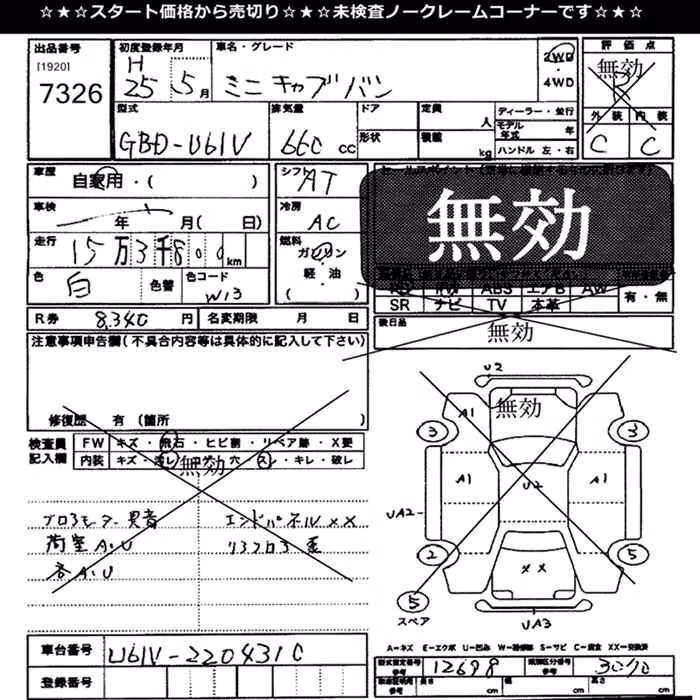 ☆★☆スタート価格から売切り☆★☆未検査ノークレームコーナーです☆★☆
出品番号
[1920]
7326
初度登録年月
H
25 5月
車名・グレード
ミニキャブバン
2WD
・
4WD
評価点
無効
外装 内装
C C
型式
GBD-U61V
排気量
660 cc
ドア
形状
定員
人
積載
kg
ディーラー・並行
モデル年式 年
ハンドル 左・右
車歴
自家用・( )
シフト
AT
車検
年 月( 日)
冷房
AC
走行
15万3千800km
燃料
ガソリン
・
軽・油
( )
色
白
色替
色コード
W13
無効
SR ナビ TV 本革
有・無
R券
8,340 円
名変期限 月 日
後日品
無効
注意事項申告欄(不具合内容等は具体的に記入して下さい)
修復歴 有 (箇所 )
検査員
記入欄
FW キズ・飛石・ヒビ割・リペア跡・X要
内装 キズ・汚レ・コゲ・穴・スレ・キレ・破レ
無効
荷室A.U
エンドパネルXX
各A.U
U2
A1
無効
3
3
A1
U2
A1
UA2
2
5
XX
5
スペア
UA3
A=キズ E=エクボ U=凹み W=補修跡 S=サビ C=腐食 XX=交換済
車台番号
U61V-2204310
登録番号
型式指定番号
参考
12698
類別区分番号
参考
3070
長さ cm
幅 cm
高さ cm